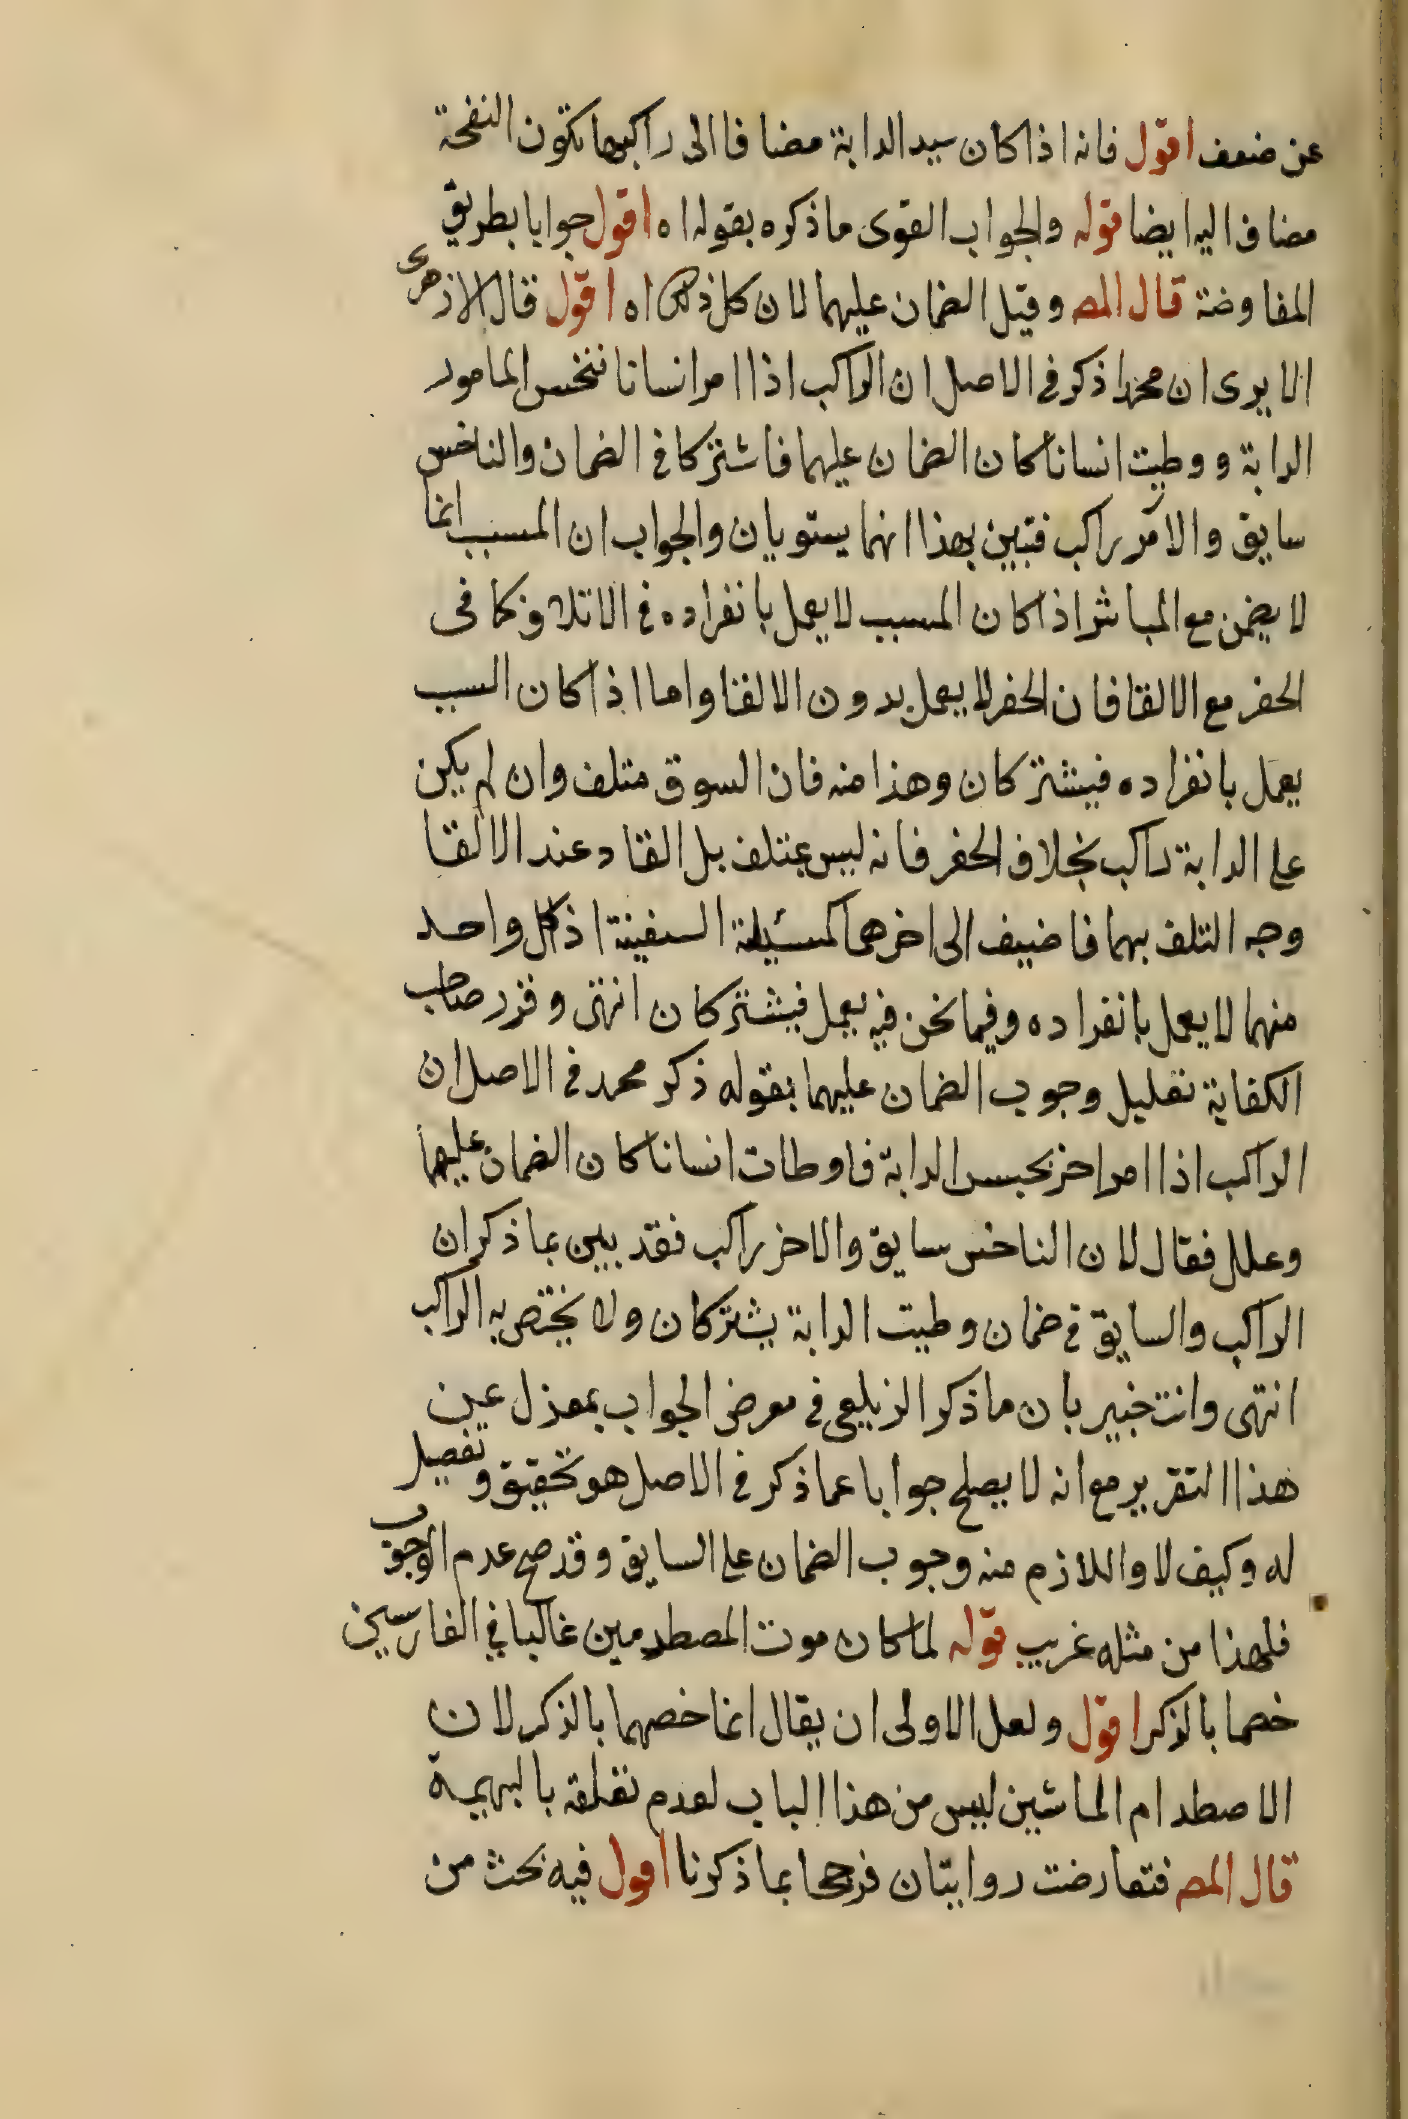 عن ضعف اقول فانه اذا كان سيد الدابة مضافا الى راكبها تكون النفحة
مضاف اليه ايضا قوله والجواب القوى ما ذكره بقوله اه اقول جوابا بطريق
المفاوضة قال المص وقيل الضمان عليهما لان كل ذلك اه اقول قال الازهرى
الا يرى ان محمدا ذكر في الاصل ان الراكب اذا امر انسانا فنخس المامور
الدابة ووطيت انسانا كان الضمان عليهما فاشتركا في الضمان والناخس
سايق والآمر راكب فتبين بهذا انهما يستويان والجواب ان المسبب انما
لا يضمن مع المباشر اذا كان المسبب لا يعمل بانفراده في الاتلاف كما فى
الحفر مع الالقا فان الحفر لا يعمل بدون الالقا واما اذا كان السبب
يعمل بانفراده فيشتركان وهذا منه فان السوق متلف وان لم يكن
على الدابة راكب بخلاف الحفر فانه ليس بمتلف بل القاد عند الالقا
وجه التلف بهما فاضيف الى اخرهما كمسئيلة السفينة اذ كل واحد
منهما لا يعمل بانفراده وفيما نحن فيه يعمل فيشتركان انتهى وقرر صاحب
الكفاية تعليل وجوب الضمان عليهما بقوله ذكر محمد في الاصل ان
الراكب اذا امر اخر بحبس الدابة فاوطات انسانا كان الضمان عليهما
وعلل فقال لان الناخس سايق والاخر راكب فقد بين بما ذكر ان
الراكب والسايق في ضمان وطيت الدابة يشتركان ولا يختص به الراكب
انتهى وانت خبير بان ما ذكر الزيلعى في معرض الجواب بمعزل عن
هذا التقرير مع انه لا يصلح جوابا عما ذكر في الاصل هو تحقيق وتفصيل
له وكيف لا واللازم منه وجوب الضمان على السايق وقد صح عدم الوجوب
فلهذا من مثله غريب قوله لما كان موت المصطدمين غالبا في الفارسين
خصا بالذكر اقول ولعل الاولى ان يقال انما خصهما بالذكر لان
الاصطدام الماشين ليس من هذا الباب لعدم تعلقه بالبهيمة
قال المص فتعارضت روايتان فرجحا بما ذكرنا اقول فيه بحث من